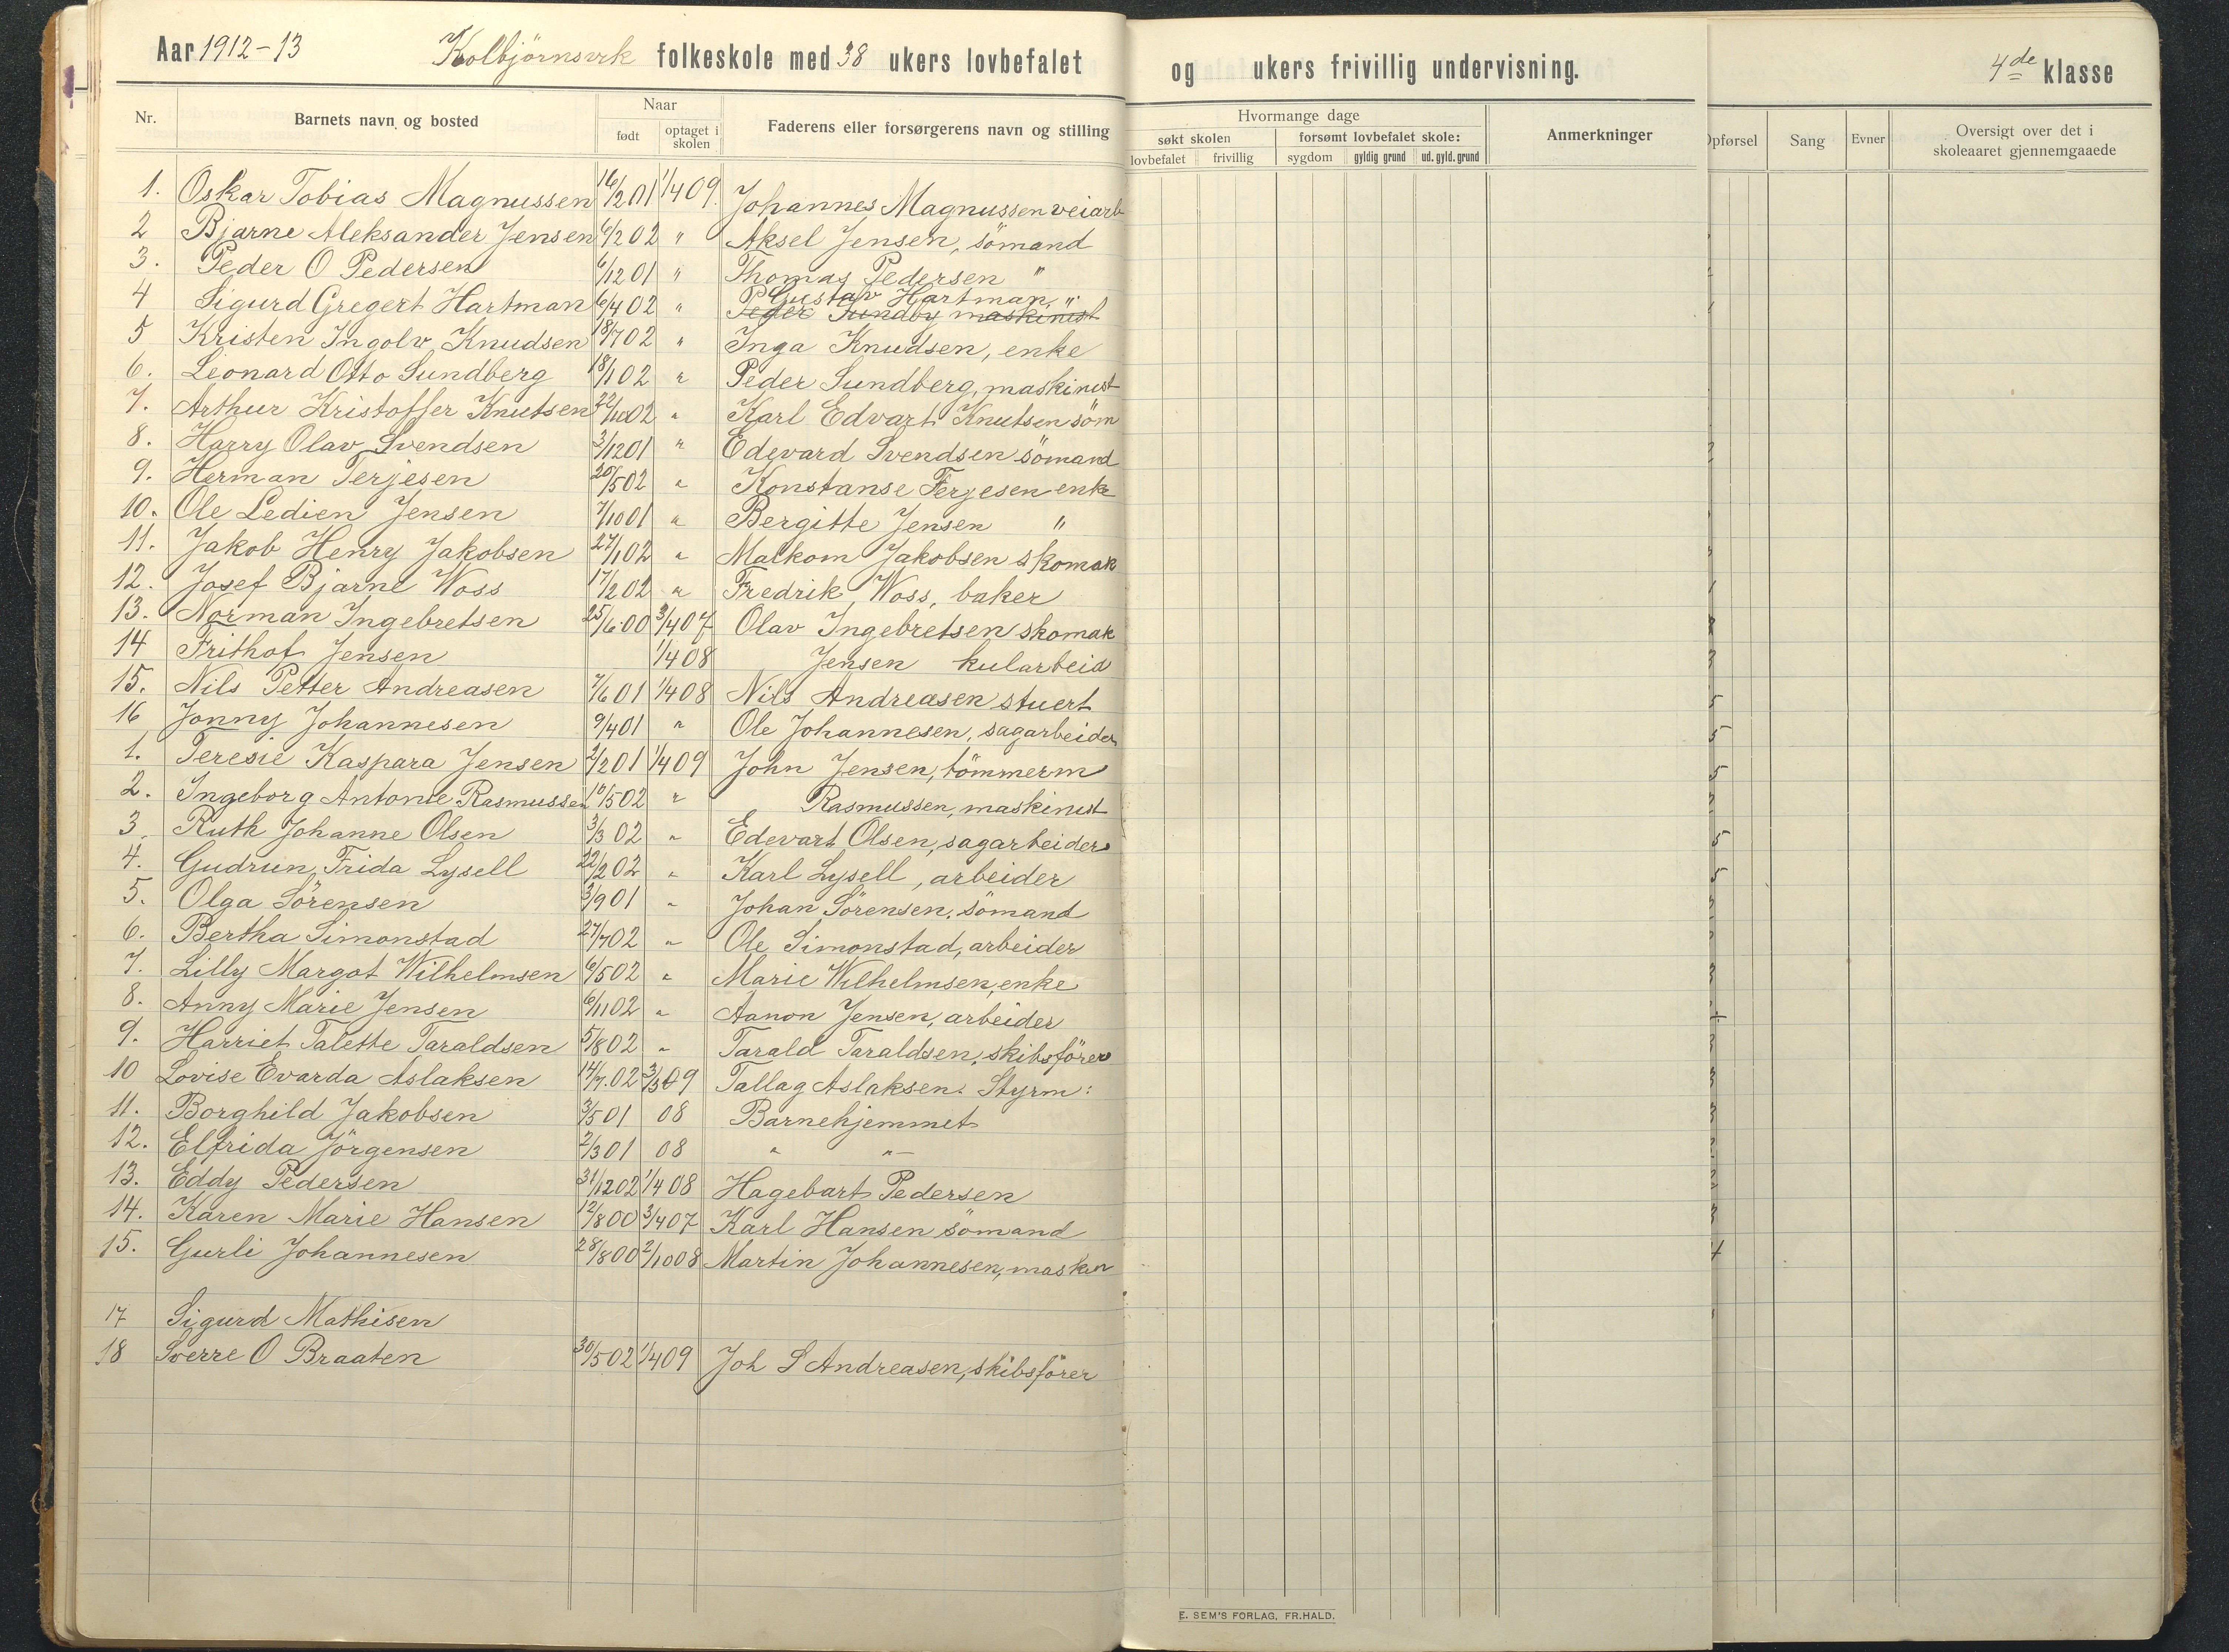 Aar 1912-13 Kolbjörnsvik folkeskole med 38 ukers lovbefalet og ukers frivillig undervisning. 4de klasse
Nr. Barnets navn og bosted Naar født optaget i skolen Faderens eller forsørgerens navn og stilling Hvormange dage søkt skolen lovbefalet frivillig forsømt lovbefalet skole: sygdom gyldig grund ud. gyld. grund Anmerkninger Opførsel Sang Evner Oversigt over det i skoleaaret gjennemgaaede
1. Oskar Tobias Magnussen 16/2 01 1/4 09. Johannes Magnussen veiarb
2 Bjarne Aleksander Jensen 6/2 02 " Aksel Jensen, sömand
3. Peder O Pedersen 6/12 01 " Thomas Pedersen "
4 Sigurd Gregert Hartman 6/4 02 " P Gustav Hartman "
Peder Sundby maskinist
5 Kristen Ingolv Knudsen 18/7 02 " Inga Knudsen, enke
6. Leonard Otto Sundberg 18/1 02 " Peder Sundberg, maskinist
7. Arthur Kristoffer Knutsen 22/10 02 " Karl Edvart Knutsen söm
8. Harry Olav Svendsen 3/12 01 " Edevard Svendsen sömand
9. Herman Terjesen 20/5 02 " Konstanse Terjesen enke
10. Ole Ledien Jensen 7/10 01 " Bergitte Jensen "
11. Jakob Henry Jakobsen 27/1 02 " Malkom Jakobsen skomak
12. Josef Bjarne Woss 17/2 02 " Fredrik Woss, baker
13. Norman Ingebretsen 25/6 00 3/4 07 Olav Ingebretsen skomak
14 Frithof Jensen 1/4 08 Jensen kularbeid
15. Nils Petter Andreasen 7/6 01 1/4 08 Nils Andreasen stuert 5
16 Jonny Johannesen 9/4 01 " Ole Johannesen, sagarbeider 5
1. Teresie Kaspara Jensen 2/2 01 1/4 09 John Jensen, tömmerm 5
2. Ingeborg Antonie Rasmussen 10/5 02 " Rasmussen, maskinist
3. Ruth Johanne Olsen 3/3 02 " Edevart Olsen, sagarbeider 5
4. Gudrun Frida Lysell 22/2 02 " Karl Lysell, arbeider 5
5. Olga Sörensen 3/9 01 " Johan Sörensen, sömand
6. Bertha Simonstad 27/7 02 " Ole Simonstad, arbeider
7. Lilly Margot Wilhelmsen 6/5 02 " Marie Wilhelmsen, enke
8. Anny Marie Jensen 6/11 02 " Aanon Jensen, arbeider
9. Harriet Talette Taraldsen 5/8 02 " Tarald Taraldsen, skibsförer
10 Lovise Evarda Aslaksen 14/7. 02 3/3 09 Tallag Aslaksen. Styrm:
11. Borghild Jakobsen 3/5 01 08 Barnehjemmet
12. Elfrida Jörgensen 2/3 01 08 " "
13. Eddy Pedersen 31/12 02 1/4 08 Hagebart Pedersen
14. Karen Marie Hansen 12/8 00 3/4 07 Karl Hansen sömand
15. Gurli Johannesen 28/8 00 2/10 08 Martin Johannesen, maskin 4
17 Sigurd Mathisen
18 Sverre O Braaten 30/5 02 1/4 09 Joh S Andreasen, skibsförer
E. SEM'S FORLAG, FR.HALD.